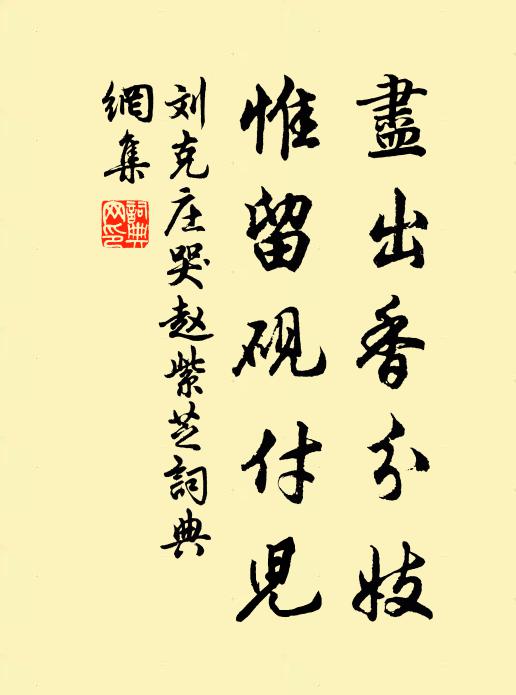 盡出香分妓
惟留硯付児
刘克庄哭赵紫芝詞典
網集
詞典
网印